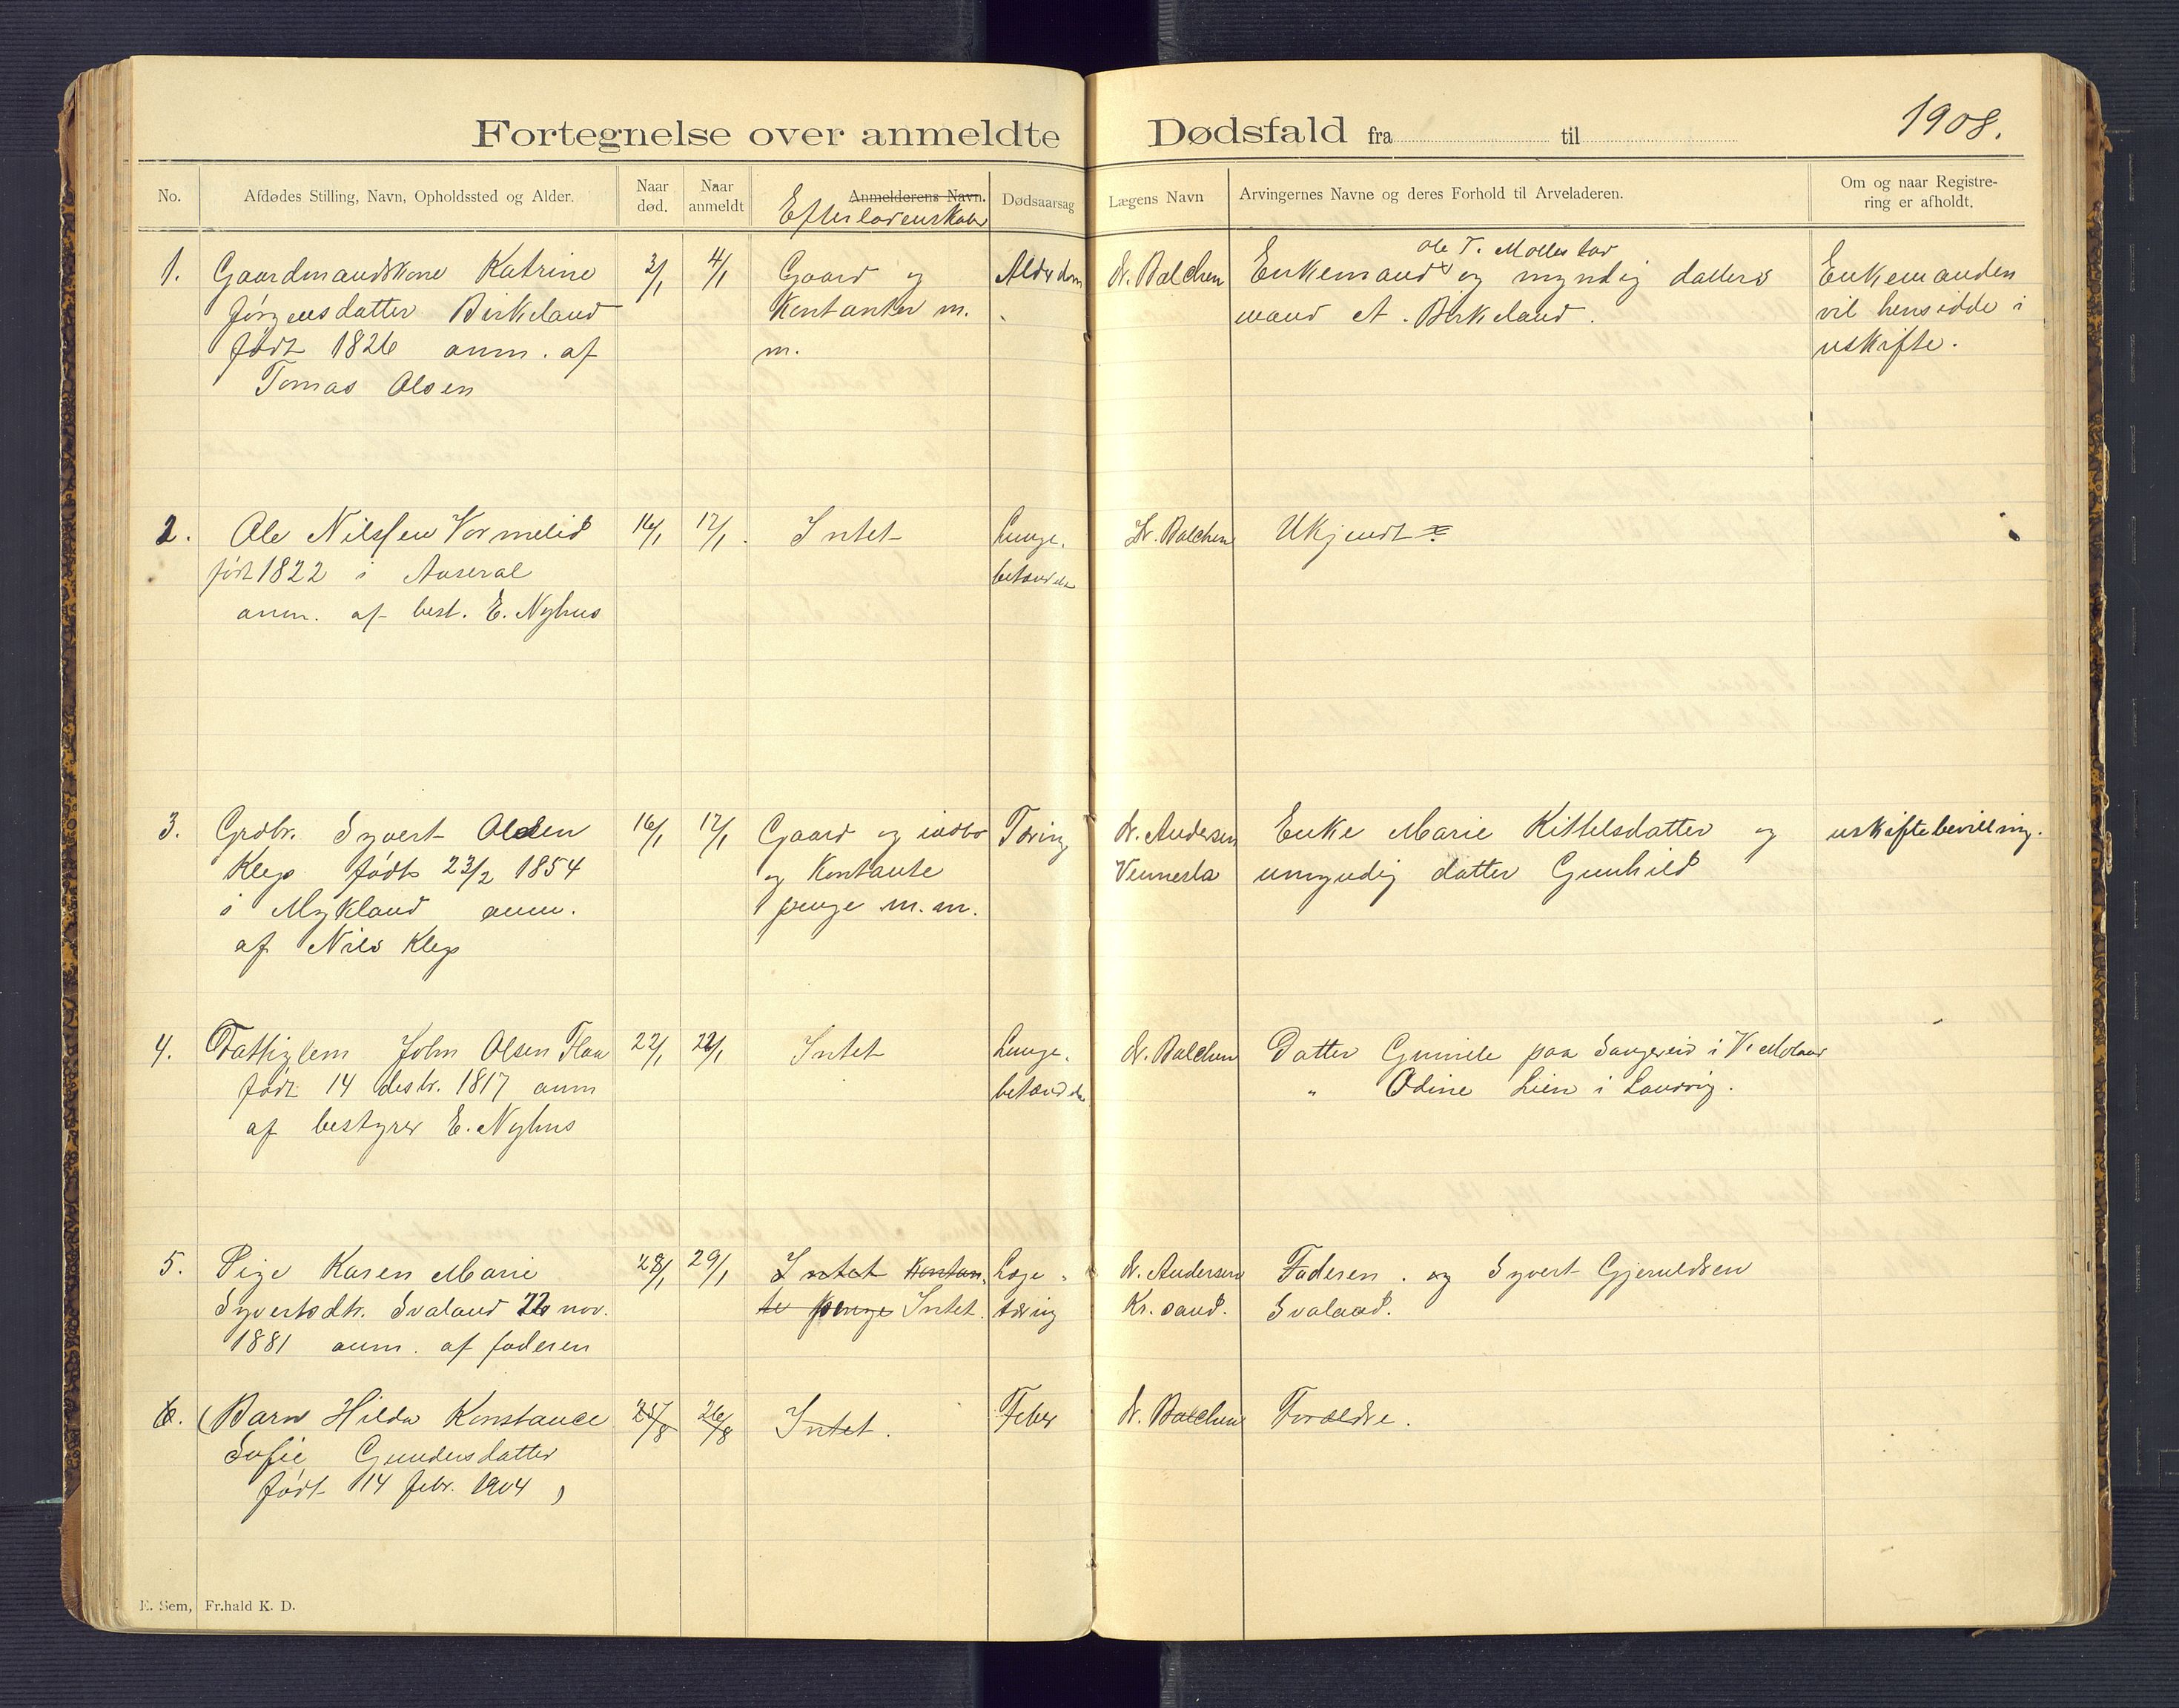 Fortegnelse over anmeldte Dødsfald fra til 1908.
No. Afdødes Stilling, Navn, Opholdssted og Alder. Naar død. Naar anmeldt Anmelderens Navn. Efterladenskaber Dødsaarsag Lægens Navn Arvingernes Navne og deres Forhold til Arveladeren. Om og naar Registrering er afholdt.
1. Gaardmandskone Katrine 3/1 4/1 Gaard og Alderdom Dr. Balchen Enkemand Ole T. Mollestad og myndig datters Enkemanden
Jørgensdatter Birkeland Kontanter m. mand A. Birkeland. vil hensidde i
født 1826 anm. af m. uskifte.
Tomas Olsen
2. Ole Nilssen Vormelid 16/1 17/1. Intet Lunge. Dr. Balchen Ukjendt
født 1822 i Aaseral betændelse
anm. af best. E. Nyhus
3. Grdbr. Syvert Olsen 16/1 17/1 Gaard og indbo Tæring Dr. Andersen Enke Marie Kittelsdatter og uskiftebevilling.
Klep født 23/2 1854 og Kontante Vennesla umyndig datter Gunhild
i Mykland anm. penge m.m.
af Nils Klep
4. Fattiglem John Olsen Flaa 22/1 22/1 Intet Lunge. Dr. Balchen Datter Gunilde paa
født 14 desbr. 1817 anm betændelse " Odine Lien i Landvig.
af bestyrer E. Nyhus
5. Pige Karen Marie 28/1 29/1 Intet Kontan- Dr. Andersen Faderen. og Syvert Gjeruldsen
Syvertsdtr. Svaland 22 nov. te penge Intet. tæring Kr. sand. Svaland.
1881 anm. af faderen
6. (Barn Hilda Konstance 25/8 26/8 Intet. Feber Dr. Balchen Forældre.
Sofie Gundersdatter
født 14 febr. 1904 )
E. Sem, Fr.hald K. D.